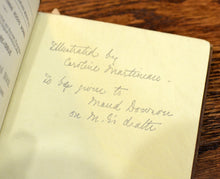 Illustrated by
Caroline Martineau.
To be given to
Maud
on M. G's death